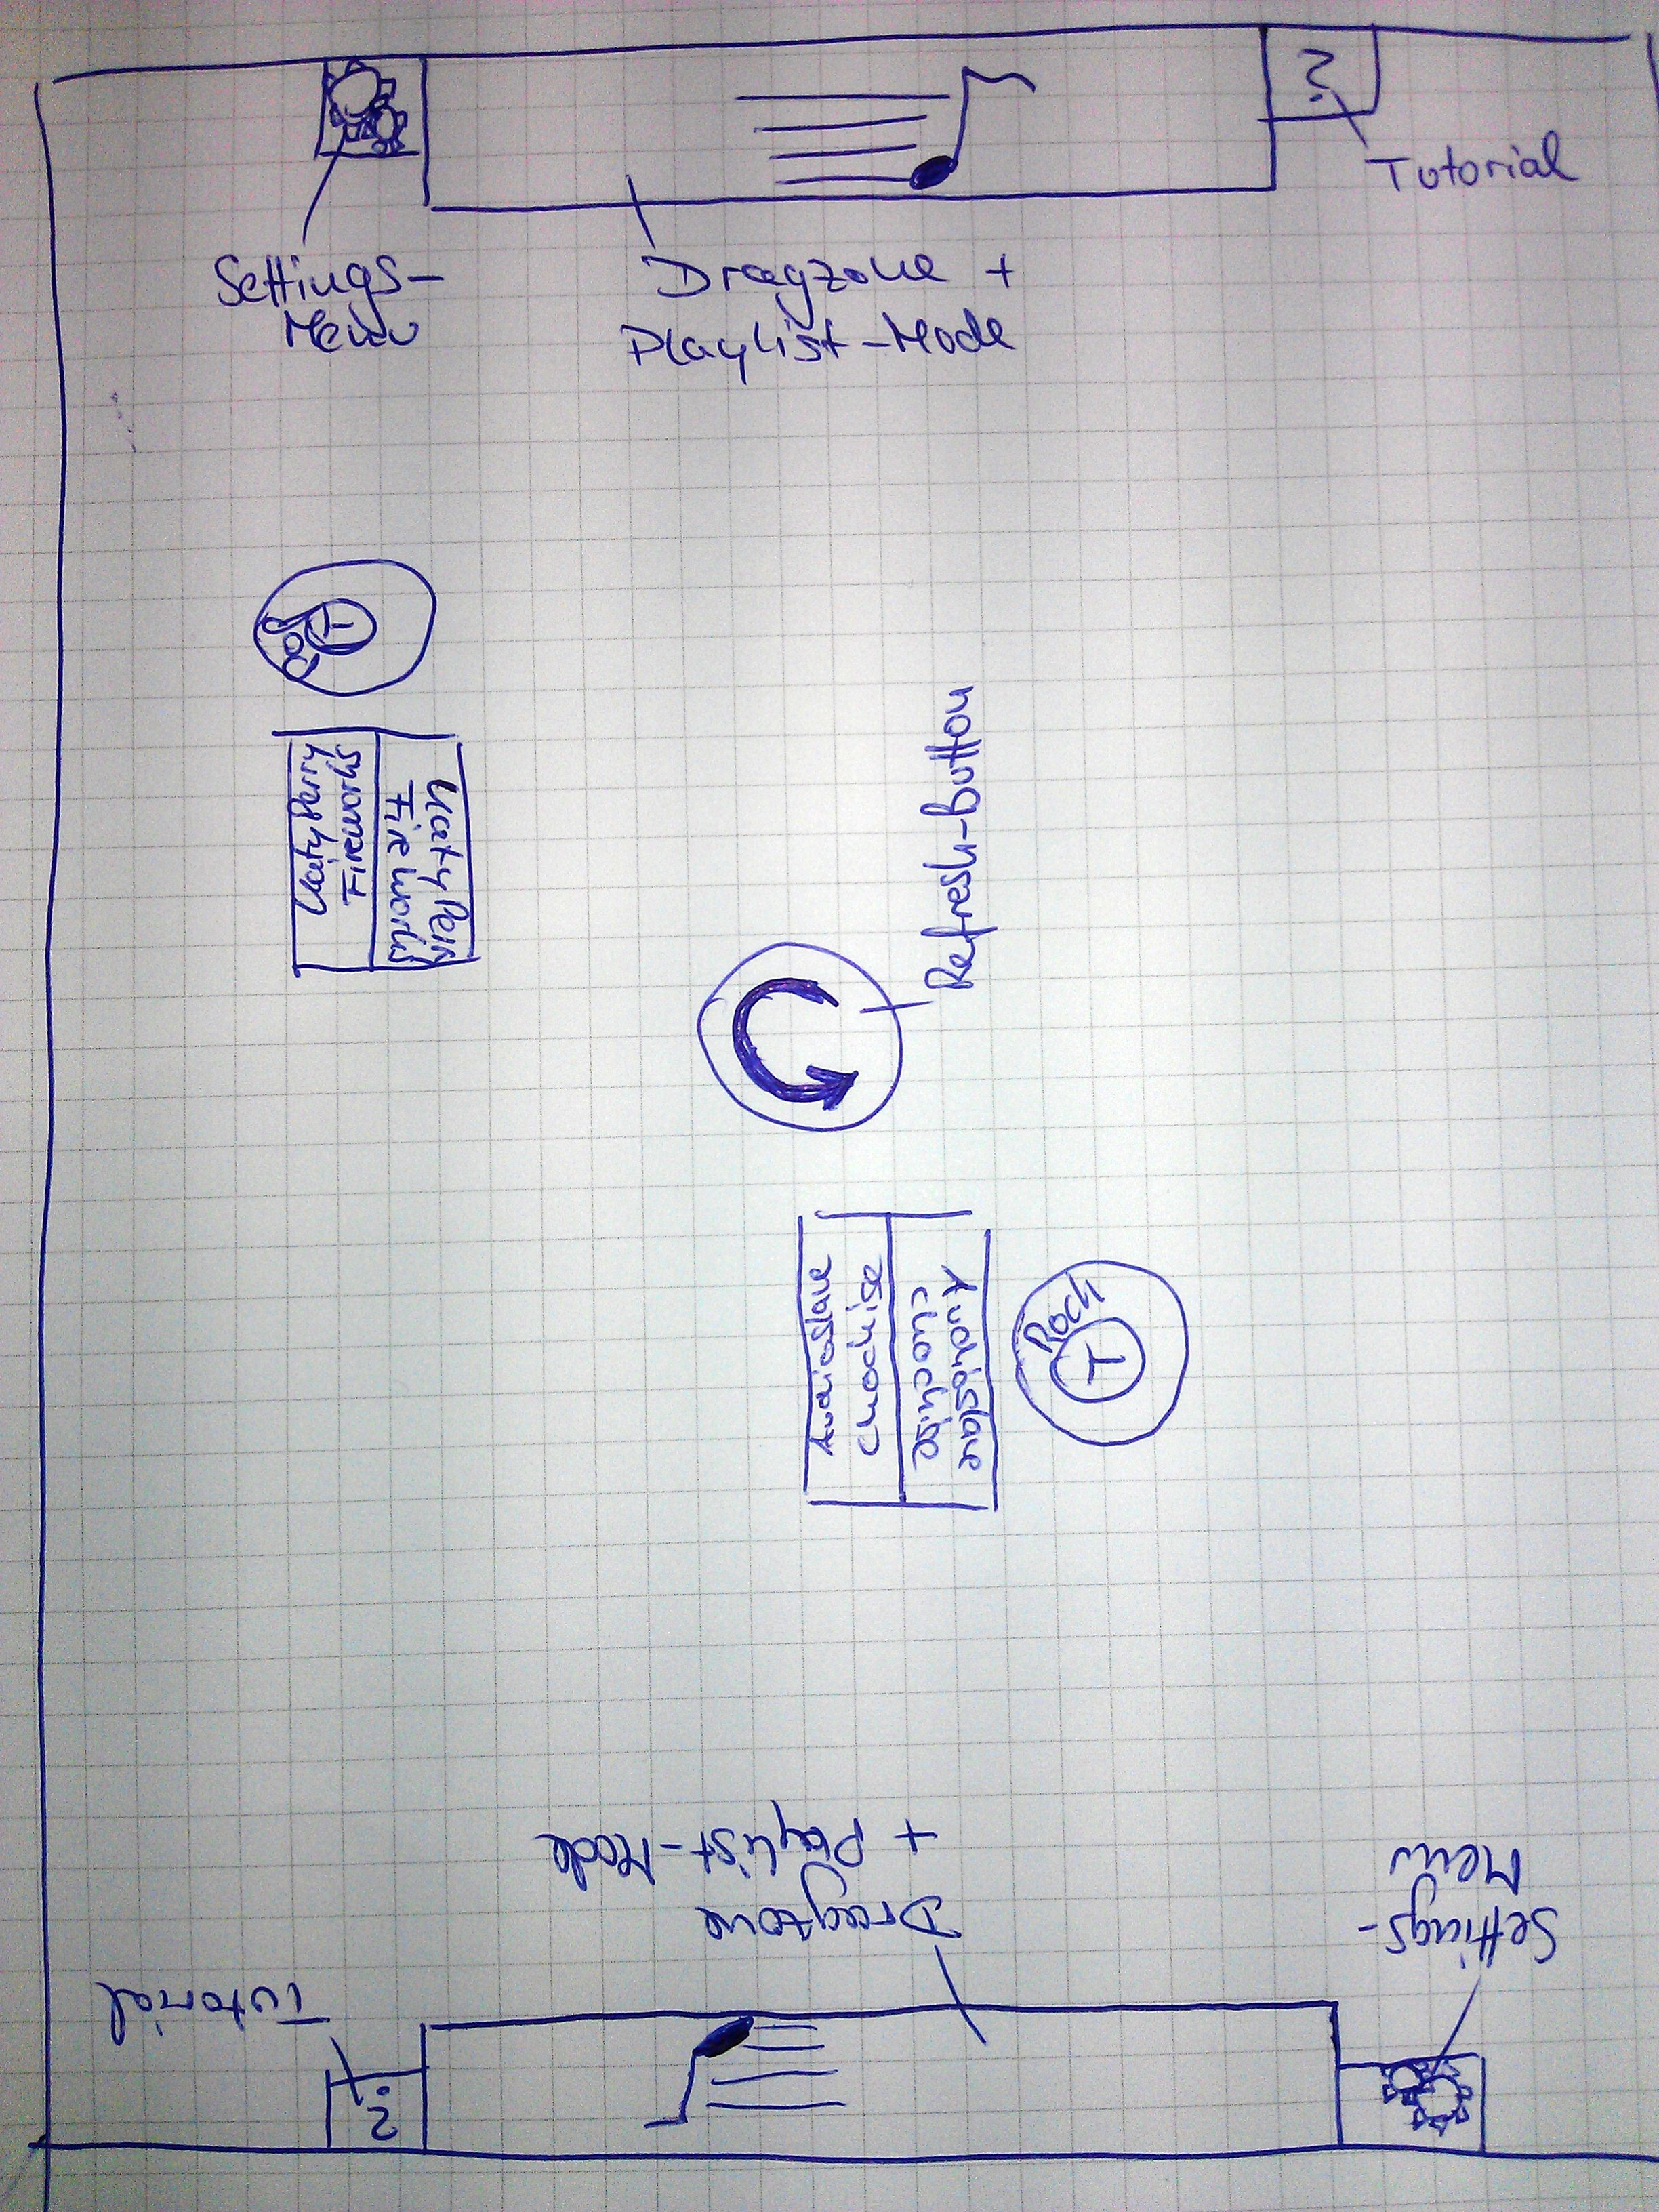 ?
Tutorial
Settings-
Menu
Dragzone +
Playlist-Mode
Pop
T
Katy Perry
Fireworks
Katy Perr
Fireworks
Refresh-Button
Audioslave
Chochise
Audioslave
Chochise
Rock
T
Settings-
Menu
Dragzone
+ Playlist-Mode
Tutorial
?